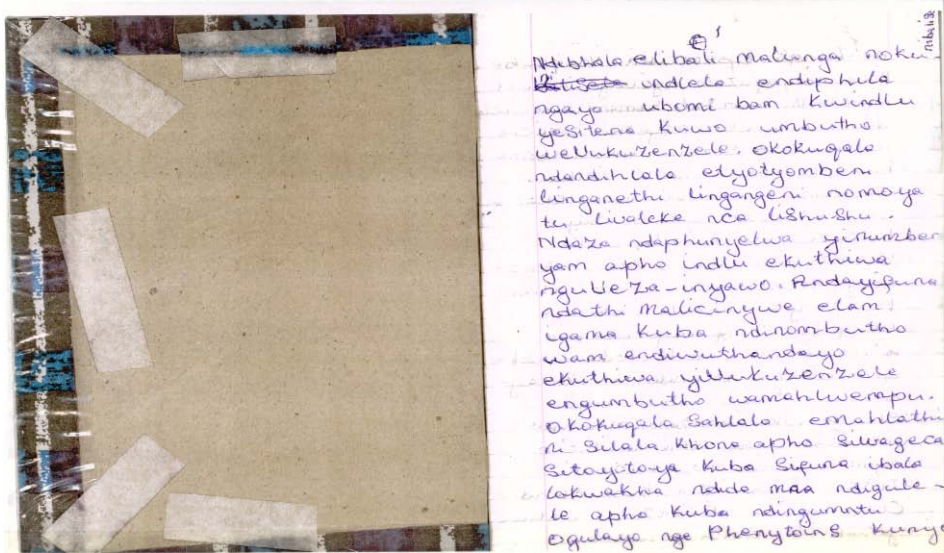 Ndibhala elibali malunga noku-
indlela endiphila
ngayo ubomi bam kwindlu
yesitena kuwo umbutho
weVukuzenzele. Okokuqala
ndandihlala etyotyombeni
linganethi lingangeni nomoya
tu livaleke nca lishushu.
Ndaza ndaphunyelwa yinumber
yam apho indlu ekuthiwa
nguVeza-inyawo. Andayifuna
ndathi malicinywe elam
igama kuba ndinombutho
wam endiwuthandayo
ekuthiwa yiVukuzenzele
engumbutho wamahlwempu.
Okokuqala Sahlala emahlathi
ni Silala khona apho Siwageca
Sitoyitoya kuba Sifuna ibala
lokwakha ndide maa ndigule-
le apho kuba ndingumntu
ogulayo nge Phenytoins kunye